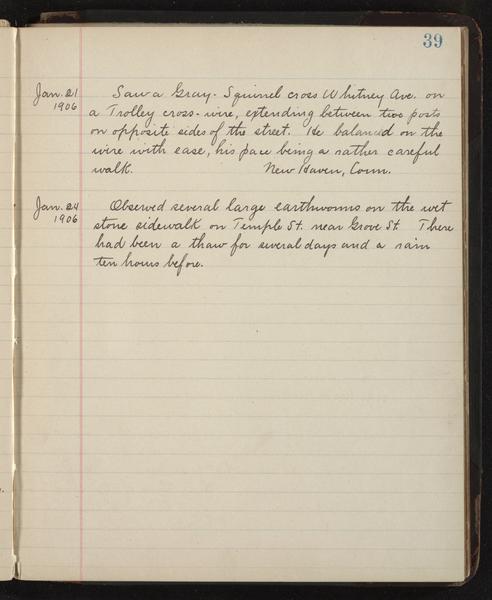 39
Jan. 21 Saw a Gray-Squirrel cross Whitney Ave. on
1906 a Trolley cross-wire, extending between two posts
on opposite sides of the street. He balanced on the
wire with ease, his pace being a rather careful
walk. New Haven, Conn.
Jan. 24 Observed several large earthworms on the wet
1906 stone sidewalk on Temple St. near Grove St. There
had been a thaw for several days and a rain
ten hours before.